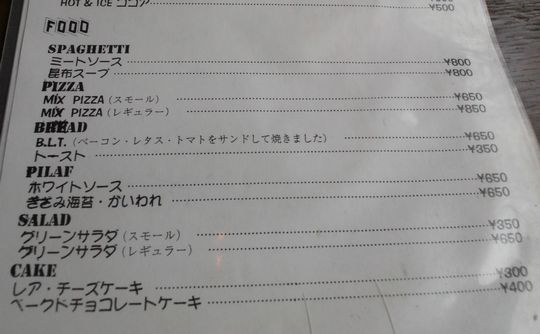 HOT & ICE ココア ¥500
¥500
FOOD
SPAGHETTI
ミートソース ¥800
昆布スープ ¥800
PIZZA
MIX PIZZA (スモール) ¥650
MIX PIZZA (レギュラー) ¥850
BREAD
B.L.T. (ベーコン・レタス・トマトをサンドして焼きました) ¥650
トースト ¥350
PILAF
ホワイトソース ¥650
きざみ海苔・かいわれ ¥650
SALAD
グリーンサラダ (スモール) ¥350
グリーンサラダ (レギュラー) ¥650
CAKE
レア・チーズケーキ ¥300
ベークドチョコレートケーキ ¥400